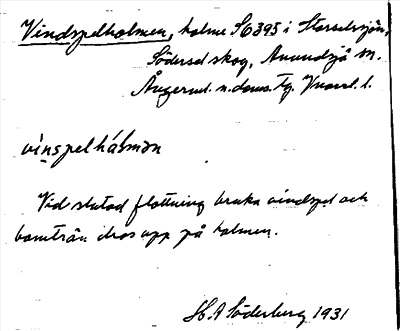 Vindspelholmen, holme S6395 i Storselsjön,
Södersel skog, Anundsjö sn.
Ångerml. n. doms. Tg. Vnorrl. l.
vinspelhålmən
Vid slutad flottning bruka vindspel och
bomträn dras upp på holmen.
H. A Söderberg 1931